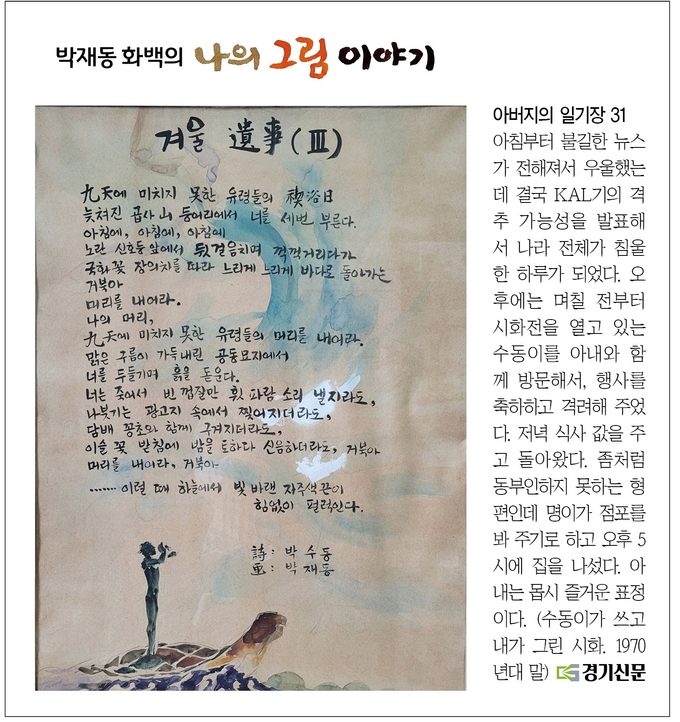 박재동 화백의 나의 그림 이야기
겨울 遺事(Ⅲ)
九天에 미치지 못한 유령들의 禊浴日
늦쳐진 곱사 山 등어리에서 너를 세번 부른다.
아침에, 아침에, 아침에
노란 신호등 앞에서 뒸걸음치며 끽끽거리다가
국화꽃 장의차를 따라 느리게 느리게 바다로 돌아가는
거북아
머리를 내어라.
나의 머리,
九天에 미치지 못한 유령들의 머리를 내어라.
맑은 구름이 가득내린 공동묘지에서
너를 두들기며 흙을 돋운다.
너는 죽어서 빈 껍질만 휫 파람 소리 낼지라도,
나붓기는 광고지 속에서 찢어지더라도,
담배 꽁초와 함께 구겨지더라도,
이슬 꽃 받침에 밤을 토하다 신음하더라도, 거북아
머리를 내어라, 거북아
...... 이럴 때 하늘에서 빛 바랜 자주색끈이
힘없이 펄럭인다.
詩: 박 수 동
画: 박 재 동
아버지의 일기장 31
아침부터 불길한 뉴스
가 전해져서 우울했는
데 결국 KAL기의 격
추 가능성을 발표해
서 나라 전체가 침울
한 하루가 되었다. 오
후에는 며칠 전부터
시화전을 열고 있는
수동이를 아내와 함
께 방문해서, 행사를
축하하고 격려해 주었
다. 저녁 식사 값을 주
고 돌아왔다. 좀처럼
동부인하지 못하는 형
편인데 명이가 점포를
봐 주기로 하고 오후 5
시에 집을 나섰다. 아
내는 몹시 즐거운 표정
이다. (수동이가 쓰고
내가 그린 시화. 1970
년대 말) 경기신문